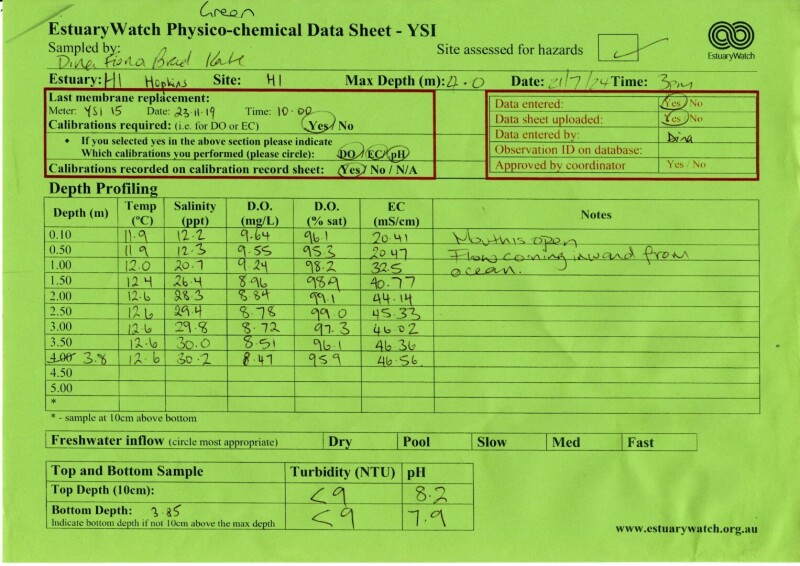 Green
EstuaryWatch Physico-chemical Data Sheet - YSI
Sampled by: Dina Fiona Brad Kate
Site assessed for hazards ✓
EstuaryWatch
Estuary: H1 Hopkins Site: H1 Max Depth (m): 4.0 Date: 21/7/24 Time: 3pm
Last membrane replacement:
Meter: YSI 15 Date: 23-11-19 Time: 10-00
Calibrations required: (i.e. for DO or EC) Yes/No
• If you selected yes in the above section please indicate
Which calibrations you performed (please circle): DO/EC/pH
Calibrations recorded on calibration record sheet: Yes/ No / N/A
Data entered: Yes/ No
Data sheet uploaded: Yes/ No
Data entered by: Dina
Observation ID on database:
Approved by coordinator Yes / No
Depth Profiling
Depth (m) Temp (ºC) Salinity (ppt) D.O. (mg/L) D.O. (% sat) EC (mS/cm) Notes
0.10 11.9 12.2 9.64 96.1 20.41 Mouth is open
0.50 11.9 12.3 9.55 95.3 20.47 Flow coming inward from
1.00 12.0 20.7 9.24 98.2 32.5 ocean.
1.50 12.4 26.4 8.96 98.9 40.77
2.00 12.6 28.3 8.84 99.1 44.14
2.50 12.6 29.4 8.78 99.0 45.33
3.00 12.6 29.8 8.72 97.3 46.02
3.50 12.6 30.0 8.51 96.1 46.36
4.00 3.8 12.6 30.2 8.47 95.9 46.56
4.50
5.00
*
* - sample at 10cm above bottom
Freshwater inflow (circle most appropriate) Dry Pool Slow Med Fast
Top and Bottom Sample Turbidity (NTU) pH
Top Depth (10cm): <9 8.2
Bottom Depth: 3.85 <9 7.9
Indicate bottom depth if not 10cm above the max depth
www.estuarywatch.org.au